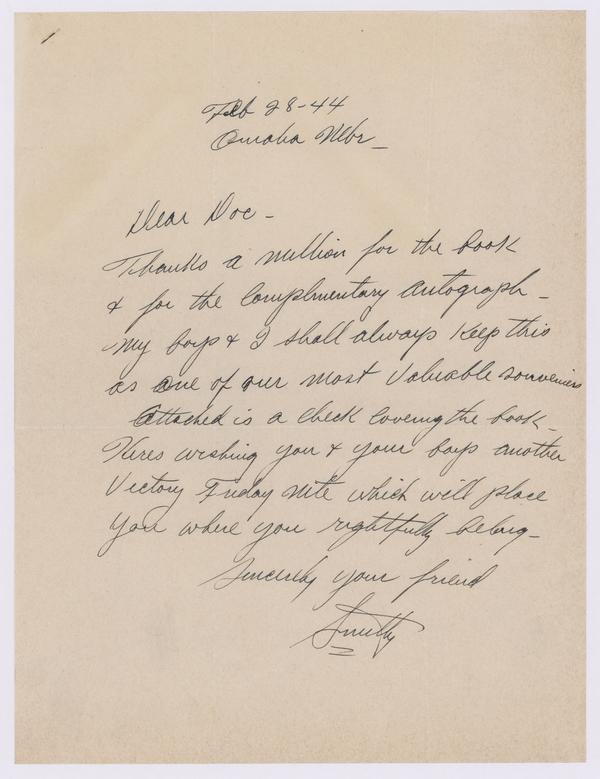 Feb 28-44
Omaha Nebr_
Dear Doc -
Thanks a million for the book
& for the Complimentary Autograph -
My boys & I shall always keep this
as one of our most valuable souveniers
Attached is a check covering the book -
Heres wishing you & your boys another
Victory Friday Nite which will place
you where you rightfully belong -
Sincerely your friend
Smitty